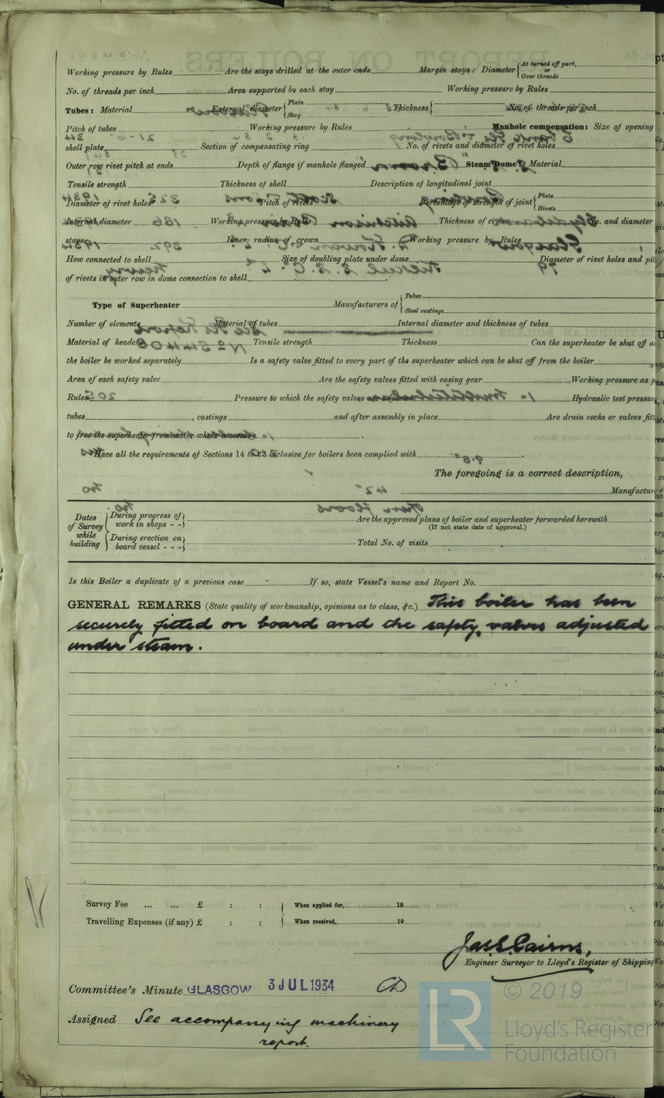 Working pressure by Rules Are the stays drilled at the outer ends Margin stays: Diameter { At turned off part, or Over threads
No. of threads per inch Area supported by each stay Working pressure by Rules
Tubes: Material External diameter { Plain Stay Thickness { No. of threads per inch
Pitch of tubes Working pressure by Rules Manhole compensation: Size of opening
shell plate Section of compensating ring No. of rivets and diameter of rivet holes
Outer row rivet pitch at ends Depth of flange if manhole flanged Steam Dome: Material
Tensile strength Thickness of shell Description of longitudinal joint
Diameter of rivet holes Pitch of rivets Percentage of strength of joint { Plate Rivets
Internal diameter Working pressure by Rules Thickness of crown No. and diameter
stays Inner radius of crown Working pressure by Rules
How connected to shell Size of doubling plate under dome Diameter of rivet holes and pit
of rivets in outer row in dome connection to shell
Type of Superheater Manufacturers of { Tubes Steel castings
Number of elements Material of tubes Internal diameter and thickness of tubes
Material of headers Tensile strength Thickness Can the superheater be shut off a
the boiler be worked separately Is a safety valve fitted to every part of the superheater which can be shut off from the boiler
Area of each safety valve Are the safety valves fitted with easing gear Working pressure as p
Rules Pressure to which the safety valves are adjusted Hydraulic test pressure,
tubes , castings and after assembly in place Are drain cocks or valves fitt
to free the superheater from water where necessary
Have all the requirements of Sections 14 to 22 inclusive for boilers been complied with
The foregoing is a correct description,
Manufactur
Dates of Survey while building { During progress of work in shops - - } Are the approved plans of boiler and superheater forwarded herewith (If not state date of approval.)
{ During erection on board vessel - - - } Total No. of visits
Is this Boiler a duplicate of a previous case - If so, state Vessel's name and Report No.
GENERAL REMARKS (State quality of workmanship, opinions as to class, &c.) This boiler has been
securely fitted on board and the safety valves adjusted
under steam.
Survey Fee ... ... £ : : When applied for, 19
Travelling Expenses (if any) £ : : When received, 19
Jas. S. Cairns,
Engineer Surveyor to Lloyd's Register of Shipping
Committee's Minute GLASGOW 3 JUL 1934
Assigned See accompanying machinery
report.
LR © 2019
Lloyd's Register
Foundation